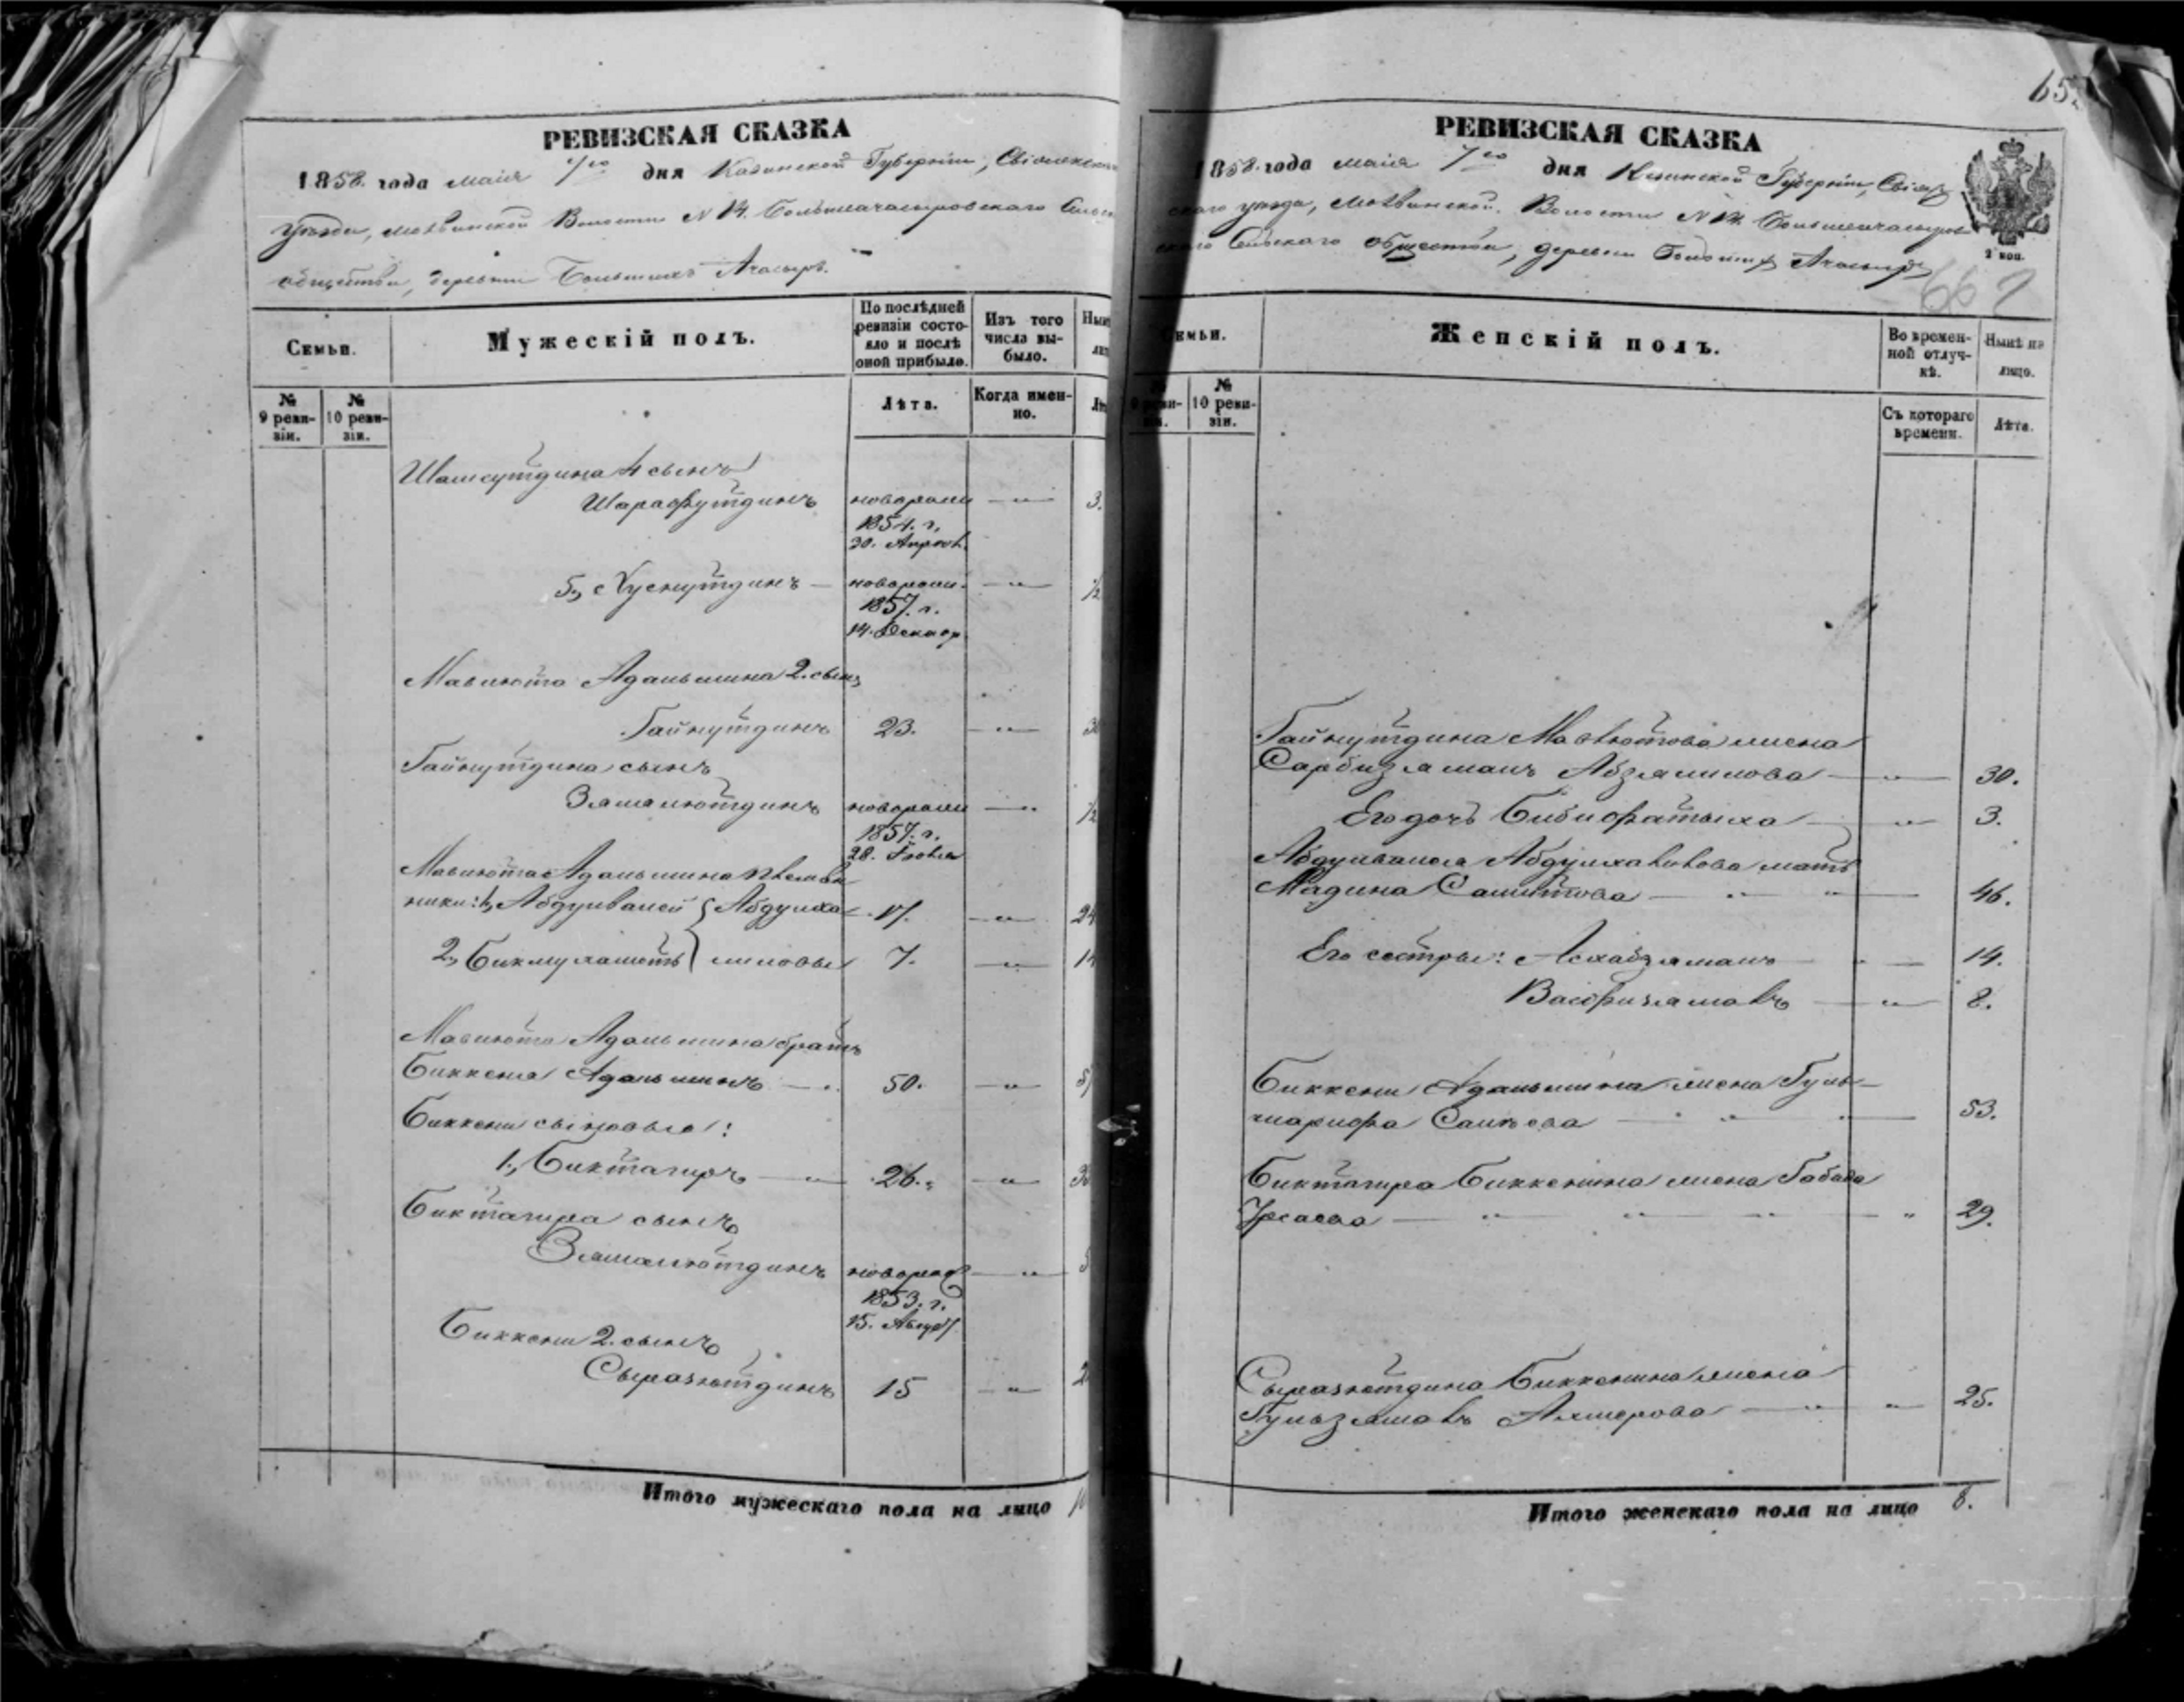 РЕВИЗСКАЯ СКАЗКА
1858. года маія 7го дня Казанской Губерніи, Свіяжск
уѣзда, Молвинской Волости N 14. Большеачасыровскаго Сельск
общества, деревни Большихъ Ачасыръ.
Семьи.
Мужескій полъ.
По послѣдней ревизіи состояло и послѣ оной прибыло.
Изъ того числа выбыло.
№ 9 ревизіи.
№ 10 ревизіи.
Лѣта.
Когда именно.
Шамсутдина 4 сынъ
Шарафутдинъ новорож 3.
1854. г.
30. Апрѣл.
5, Хуснутдинъ новорож. ½
1857. г.
14. Декабр.
Мавлюта Адельшина 2. сынъ
Гайнутдинъ 23.
Гайнутдина сынъ
Замалютдинъ новорож ½
1857. г.
28.
Мавлюта Адельшина племян
ники: 1, Абдулвалей Абдулха 17. 24
2, Бикмухаметъ лиловы 7. 14
Мавлюта Адельшина братъ
Биккеня Адельшинъ 50.
Биккени сыновья:
1, Биктагиръ 26.
Биктагира сынъ
Замалютдинъ новорож
1853. г.
15. Август
Биккени 2. сынъ
Сыразютдинъ 15
Итого мужескаго пола на лицо
65.
РЕВИЗСКАЯ СКАЗКА
1858. года маія 7го дня Казанской Губерніи, Свіяж
скаго уѣзда, Молвинской Волости N 14. Большеачасыров
скаго Сельскаго общества, деревни Большихъ Ачасыръ
2 коп.
Семьи.
Женскій полъ.
Во временной отлучкѣ.
Нынѣ на лицо.
9 ревизіи.
№ 10 ревизіи.
Съ котораго времени.
Лѣта.
Гайнутдина Мавлютова жена
Сарбизяманъ Абзялилова 30.
Его дочь Бибифатыха 3.
Абдулвалея Абдулхалилова мать
Мадина Самитова 46.
Его сестры: Асхабзяманъ 14.
8.
Биккени Адельшина жена Гуль-
шарифа 53.
Биктагира Биккенина жена
29.
Сыразютдина Биккенина жена
Гульзямалъ 25.
Итого женскаго пола на лицо 8.